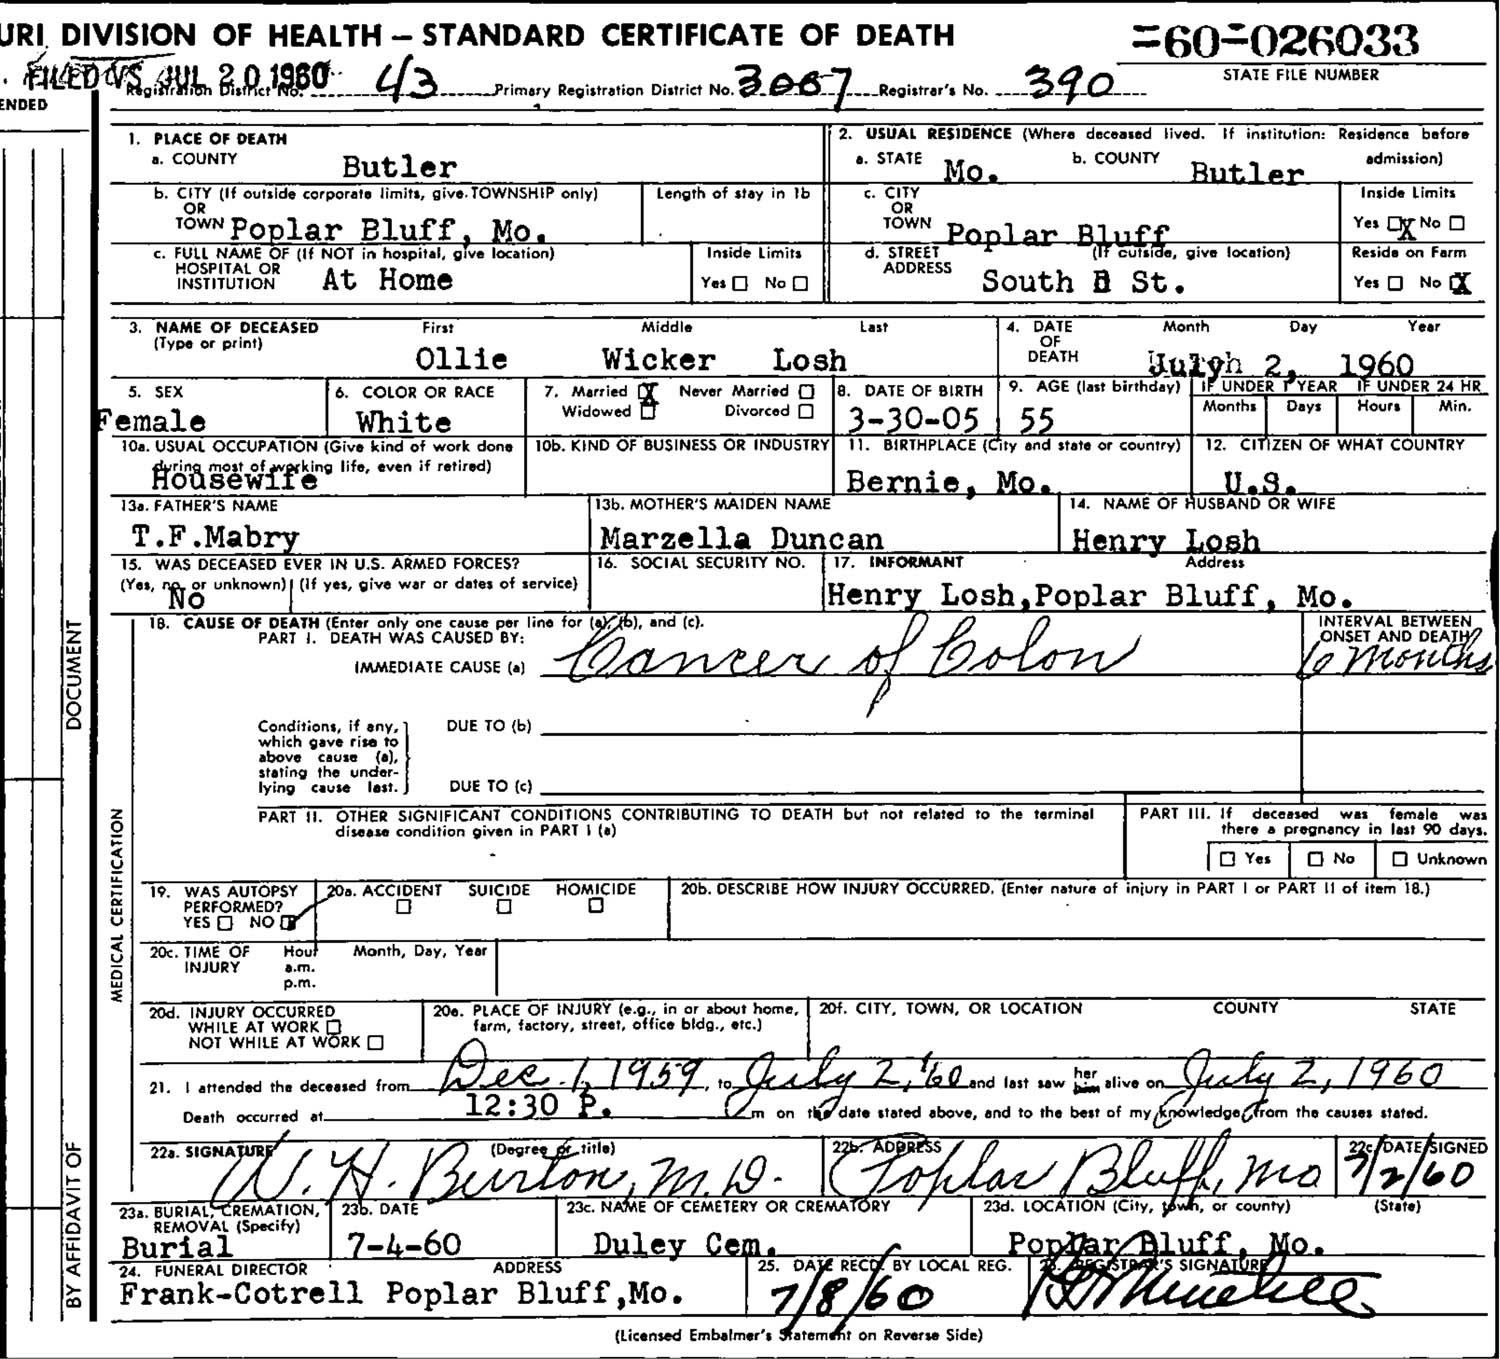 URI DIVISION OF HEALTH — STANDARD CERTIFICATE OF DEATH
=60=026033
STATE FILE NUMBER
FILED VS JUL 20 1960
Registration District No. 43 Primary Registration District No. 3007 Registrar's No. 390
ENDED
1. PLACE OF DEATH
a. COUNTY Butler
2. USUAL RESIDENCE (Where deceased lived. If institution: Residence before admission)
a. STATE Mo. b. COUNTY Butler
b. CITY (If outside corporate limits, give TOWNSHIP only) OR TOWN Poplar Bluff, Mo.
Length of stay in 1b
c. CITY OR TOWN Poplar Bluff
Inside Limits Yes ☒ No ☐
c. FULL NAME OF (If NOT in hospital, give location) HOSPITAL OR INSTITUTION At Home
Inside Limits Yes ☐ No ☐
d. STREET ADDRESS (If outside, give location) South B St.
Reside on Farm Yes ☐ No ☒
3. NAME OF DECEASED (Type or print) First Middle Last
Ollie Wicker Losh
4. DATE OF DEATH Month Day Year
July 2, 1960
5. SEX Female
6. COLOR OR RACE White
7. Married ☒ Never Married ☐ Widowed ☐ Divorced ☐
8. DATE OF BIRTH 3-30-05
9. AGE (last birthday) 55
IF UNDER 1 YEAR Months Days
IF UNDER 24 HR Hours Min.
10a. USUAL OCCUPATION (Give kind of work done during most of working life, even if retired) Housewife
10b. KIND OF BUSINESS OR INDUSTRY
11. BIRTHPLACE (City and state or country) Bernie, Mo.
12. CITIZEN OF WHAT COUNTRY U.S.
13a. FATHER'S NAME T.F.Mabry
13b. MOTHER'S MAIDEN NAME Marzella Duncan
14. NAME OF HUSBAND OR WIFE Henry Losh
15. WAS DECEASED EVER IN U.S. ARMED FORCES?
(Yes, no, or unknown) (If yes, give war or dates of service) No
16. SOCIAL SECURITY NO.
17. INFORMANT Address
Henry Losh,Poplar Bluff, Mo.
18. CAUSE OF DEATH (Enter only one cause per line for (a), (b), and (c).
PART I. DEATH WAS CAUSED BY:
IMMEDIATE CAUSE (a) Cancer of Colon
INTERVAL BETWEEN ONSET AND DEATH 6 months
Conditions, if any, which gave rise to above cause (a), stating the underlying cause last.
DUE TO (b)
DUE TO (c)
PART II. OTHER SIGNIFICANT CONDITIONS CONTRIBUTING TO DEATH but not related to the terminal disease condition given in PART I (a)
PART III. If deceased was female was there a pregnancy in last 90 days.
☐ Yes ☐ No ☐ Unknown
19. WAS AUTOPSY PERFORMED? YES ☐ NO ☒
20a. ACCIDENT ☐ SUICIDE ☐ HOMICIDE ☐
20b. DESCRIBE HOW INJURY OCCURRED. (Enter nature of injury in PART I or PART II of item 18.)
20c. TIME OF INJURY Hour a.m. p.m. Month, Day, Year
20d. INJURY OCCURRED WHILE AT WORK ☐ NOT WHILE AT WORK ☐
20e. PLACE OF INJURY (e.g., in or about home, farm, factory, street, office bldg., etc.)
20f. CITY, TOWN, OR LOCATION COUNTY STATE
21. I attended the deceased from Dec. 1, 1959, to July 2, '60 and last saw her him alive on July 2, 1960
Death occurred at 12:30 P. m on the date stated above, and to the best of my knowledge, from the causes stated.
22a. SIGNATURE (Degree or title) W. H. Burton, M.D.
22b. ADDRESS Poplar Bluff, Mo
22c. DATE SIGNED 7/2/60
23a. BURIAL, CREMATION, REMOVAL (Specify) Burial
23b. DATE 7-4-60
23c. NAME OF CEMETERY OR CREMATORY Duley Cem.
23d. LOCATION (City, town, or county) (State) Poplar Bluff, Mo.
24. FUNERAL DIRECTOR ADDRESS
Frank-Cotrell Poplar Bluff,Mo.
25. DATE RECD. BY LOCAL REG. 7/8/60
26. REGISTRAR'S SIGNATURE
(Licensed Embalmer's Statement on Reverse Side)
DOCUMENT
MEDICAL CERTIFICATION
BY AFFIDAVIT OF